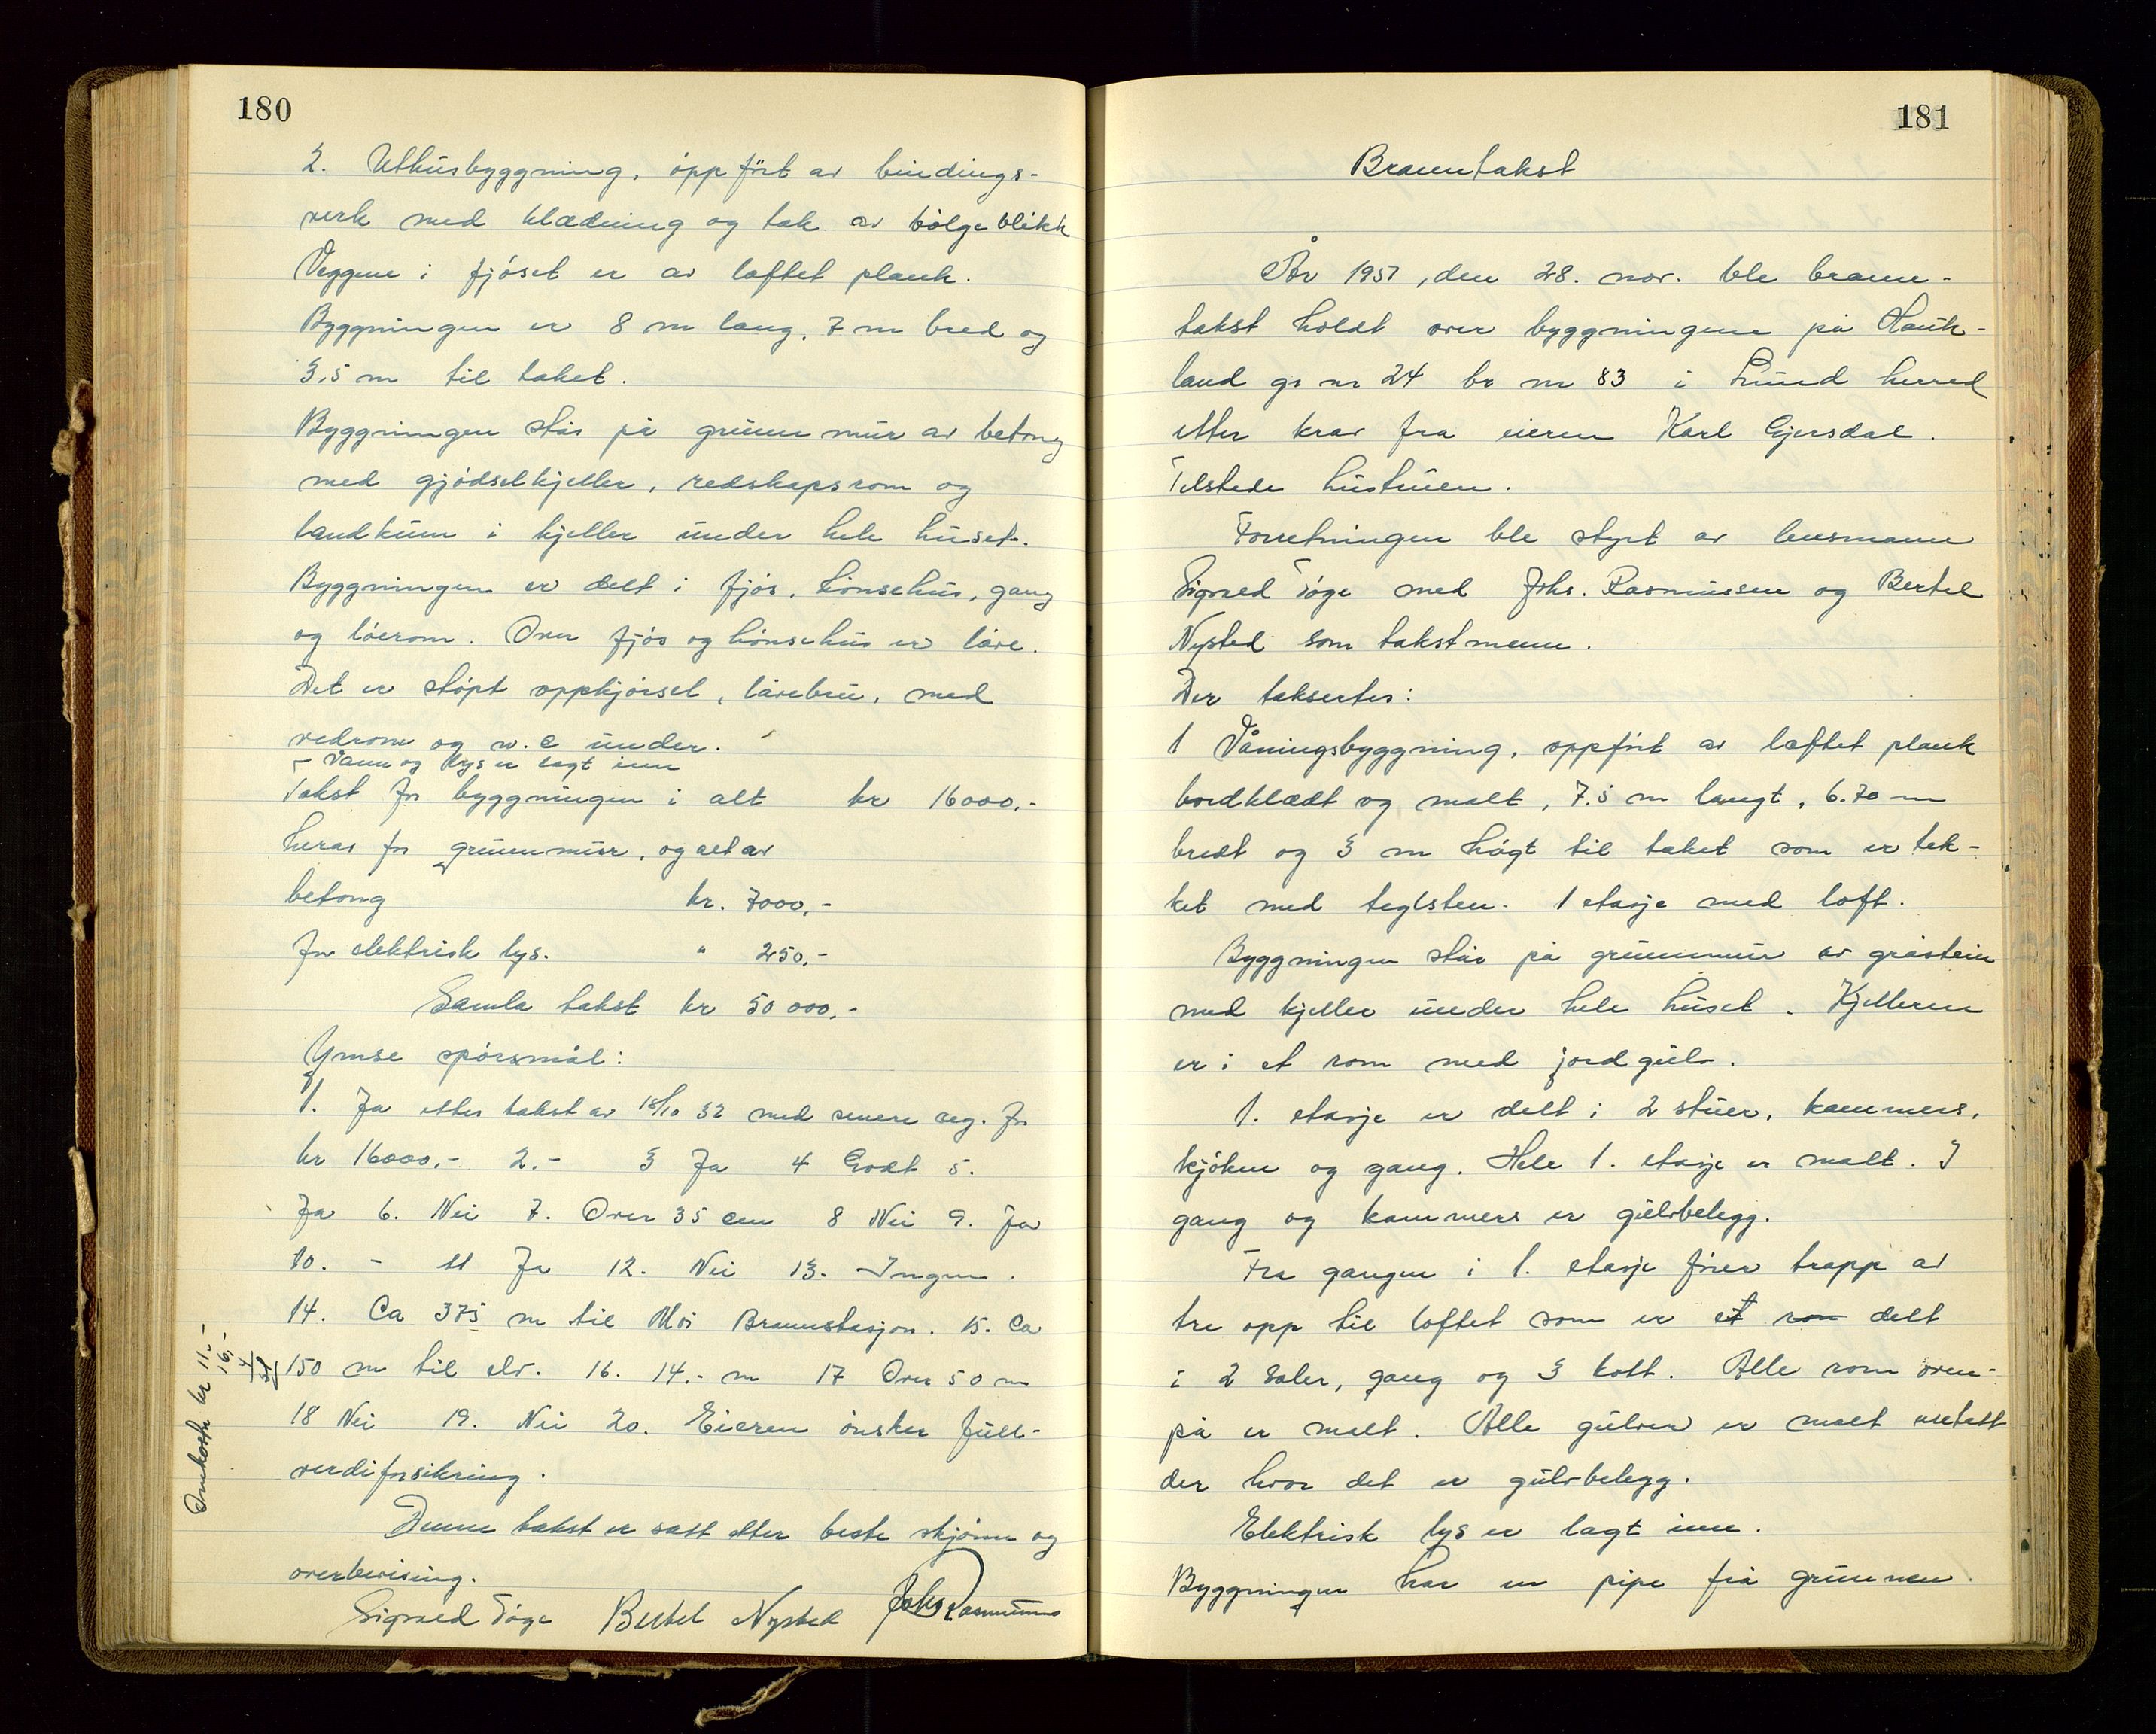 180
2. Uthusbyggning, oppført av bindings-
verk med klædning og tak av bølgeblikk
Veggene i fjøset er av laftet plank.
Byggningen er 8 m lang, 7 m bred og
3,5 m til taket.
Byggningen står på grunnmur av betong
med gjødselkjeller, redskapsrom og
landkum i kjeller under hele huset.
Byggningen er delt i fjøs, hønsehus, gang
og løerom. Over fjøs og hønsehus er låve.
Det er støpt oppkjørsel, låvebru, med
vedrom og w.c under.
Vann og lys er lagt inn
Takst for byggningen i alt kr 16000,-
herav for grunnmur, og alt av
betong kr. 7000,-
for elektrisk lys. " 250,-
Samla takst kr 50 000,-
Ymse spørsmål:
1. Ja etter takst av 18/10 32 med senere reg. for
kr 16000,- 2.- 3 Ja 4 Godt 5.
Ja 6. Nei 7. Over 35 cm 8 Nei 9. Ja
10. - 11 Ja 12. Nei 13. Ingen.
14. Ca 375 m til Moi Brannstasjon. 15. Ca
150 m til elv. 16. 14.- m 17 Over 50 m
18 Nei 19. Nei 20. Eieren ønsker full-
verdiforsikring.
Denne takst er satt etter beste skjønn og
overbevising.
Sigvald Tøge Bertel Nysted Johs Rasmussen
Omkostn kr 11,-
16,-
4
31
181
Branntakst
År 1957, den 28. nov. ble brann-
takst holdt over byggningene på Hauk-
land gr nr 24 br nr 83 i Lund herred
etter krav fra eieren Karl Gjersdal.
Tilstede hustruen.
Forretningen ble styrt av lensmann
Sigvald Tøge med Johs. Rasmussen og Bertel
Nysted som takstmenn.
Der taksertes:
1 Våningsbyggning, oppført av laftet plank
bordklædt og malt, 7.5 m langt, 6.70 m
bredt og 3 m høgt til taket som er tek-
ket med teglsten. 1 etasje med loft.
Byggningen står på grunnmur av gråstein
med kjeller under hele huset. Kjelleren
er i et rom med jordgulv.
1. etasje er delt i 2 stuer, kammers,
kjøken og gang. Hele 1. etasje er malt. I
gang og kammers er gulvbelegg.
Fra gangen i 1. etasje fører trapp av
tre opp til loftet som er et rom delt
i 2 saler, gang og 3 kott. Alle rom oven-
på er malt. Alle gulver er malt unntatt
der hvor det er gulvbelegg.
Elektrisk lys er lagt inn.
Byggningen har en pipe frå grunnen.